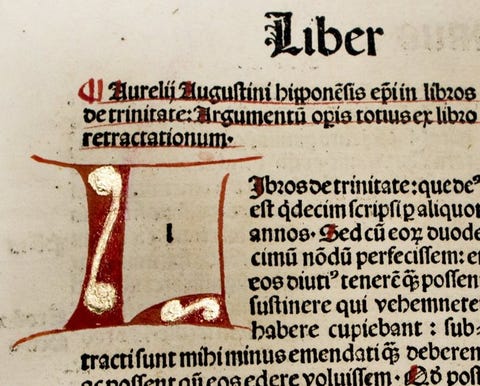 Liber
¶ Aurelij Augustini hipponẽsis ep̃i in libros
de trinitate: Argumentũ op̃is totius ex libro
retractationum.
l
Ibros de trinitate: que deꝰ
est q̃decim scripsi ꝑ aliquot
annos. Sed cũ eoꝝ duode
cimũ nõdũ perfecissem: e
eos diutiꝰ tenerẽ q̃ꝫ possen
sustinere qui vehemnete
habere cupiebant : sub-
tracti sunt mihi minus emendati q̃ꝫ deberen
ac possent qñ eos edere voluissem.